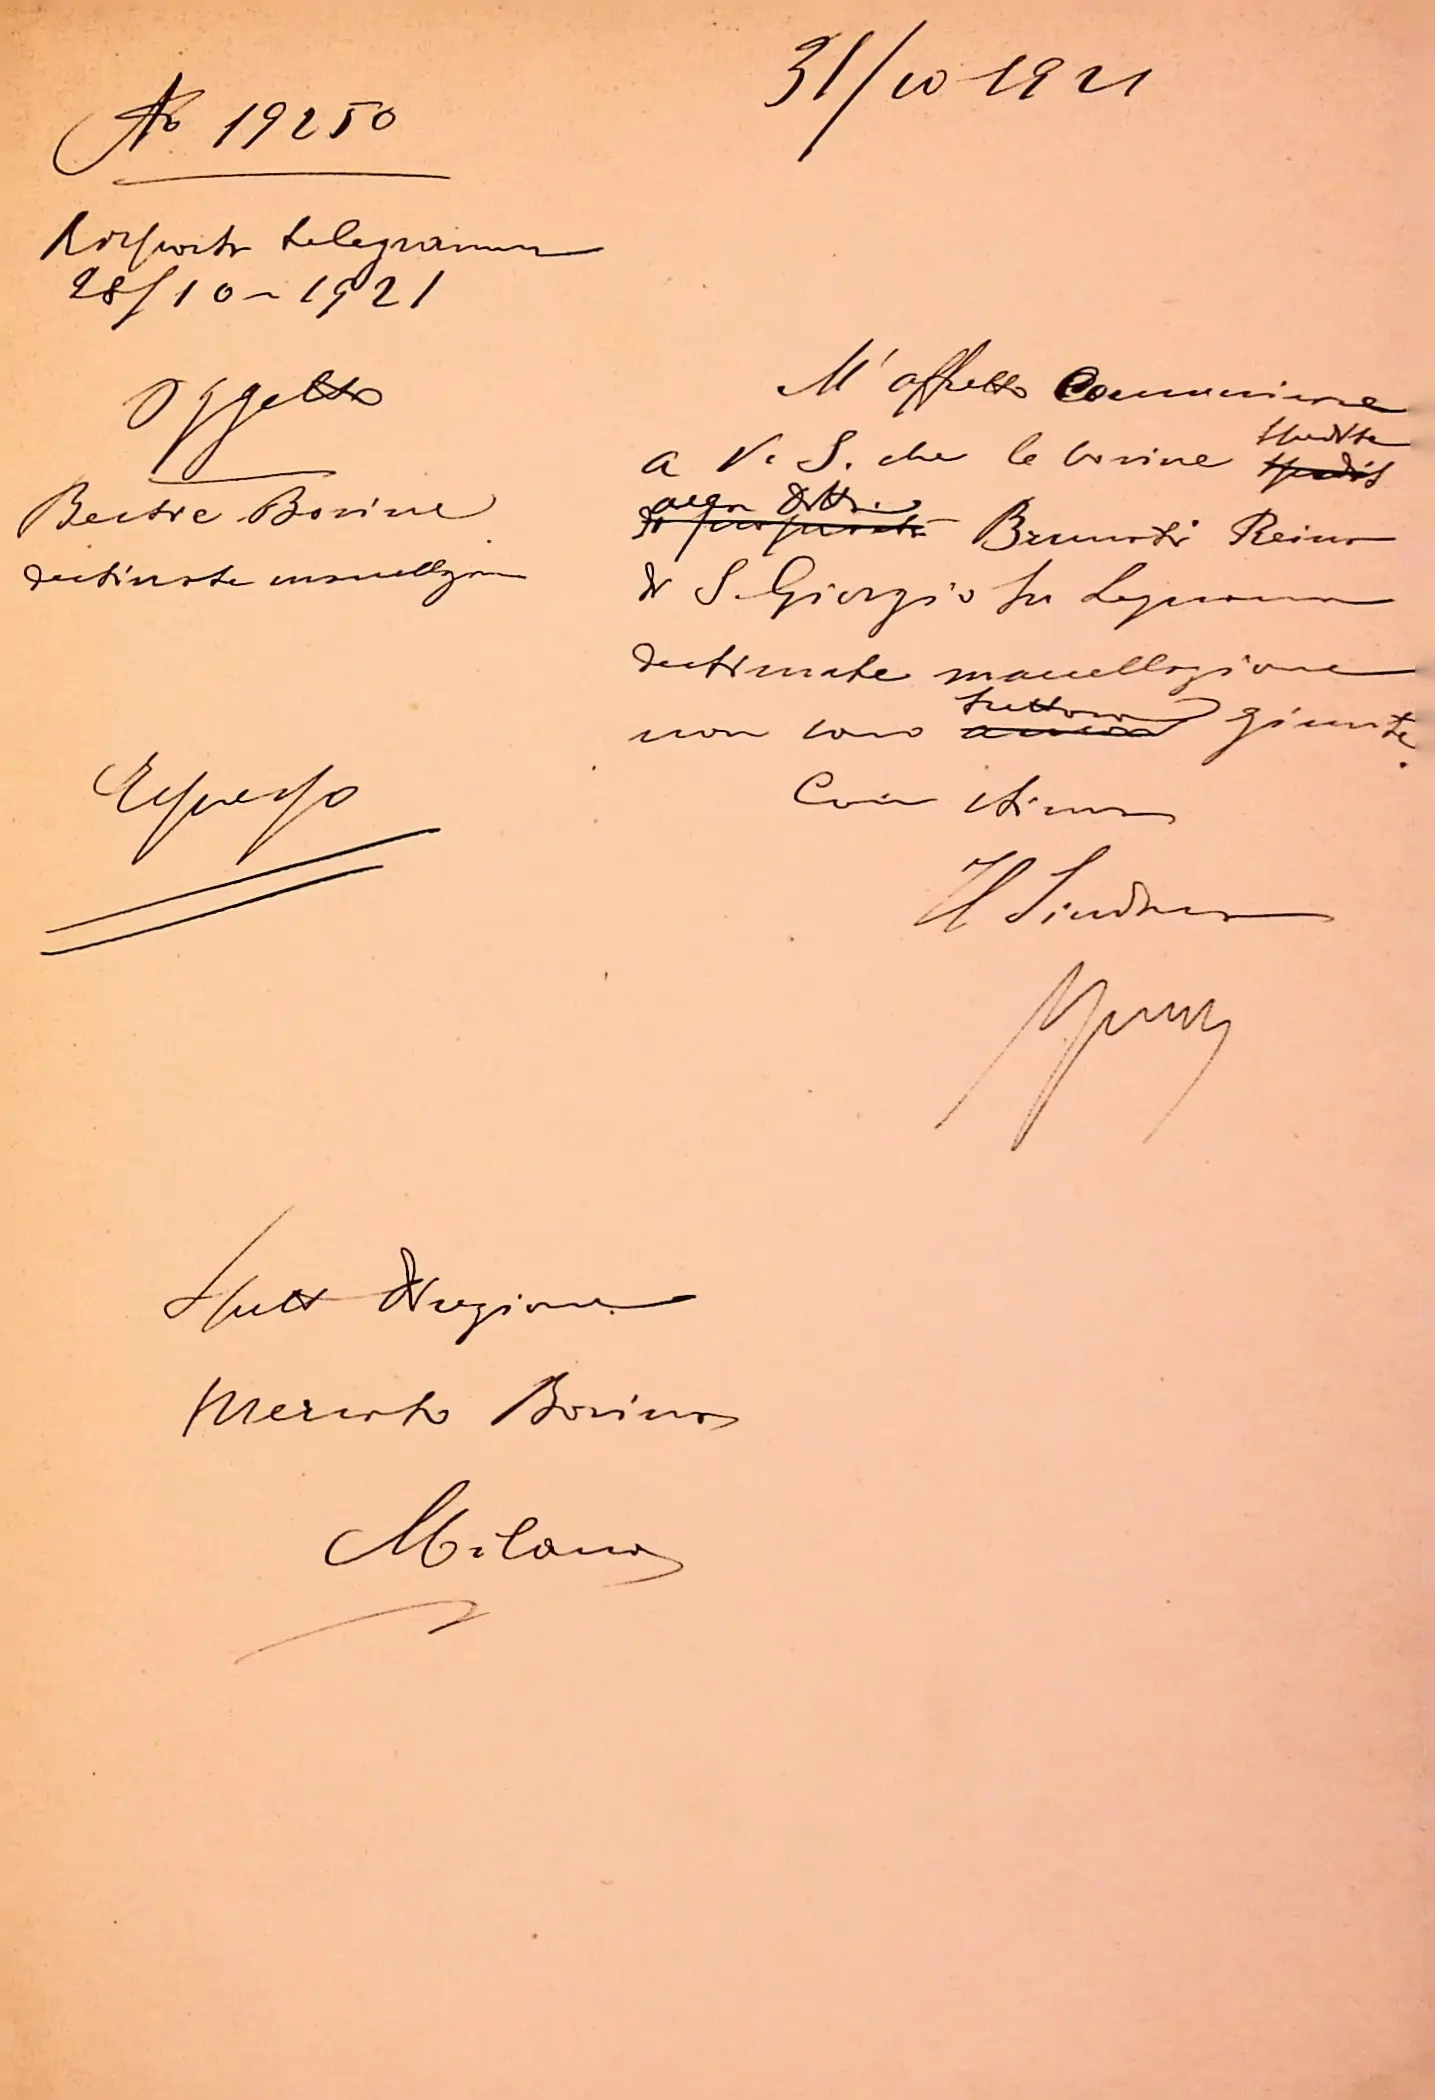 31/10 1921
No 19250
Risposta telegramma
28/10-1921
Oggetto
Bestie Bovine
destinate macellazione
Espresso
M'affretto Comunicare
a V. S. che le bovine spedite
alla Ditta Brunotti Reina
di S. Giorgio su Legnano
destinate macellazione
non sono tuttora giunte.
Con stima
Il Sindaco
Spett Direzione
Mercato Bovino
Milano